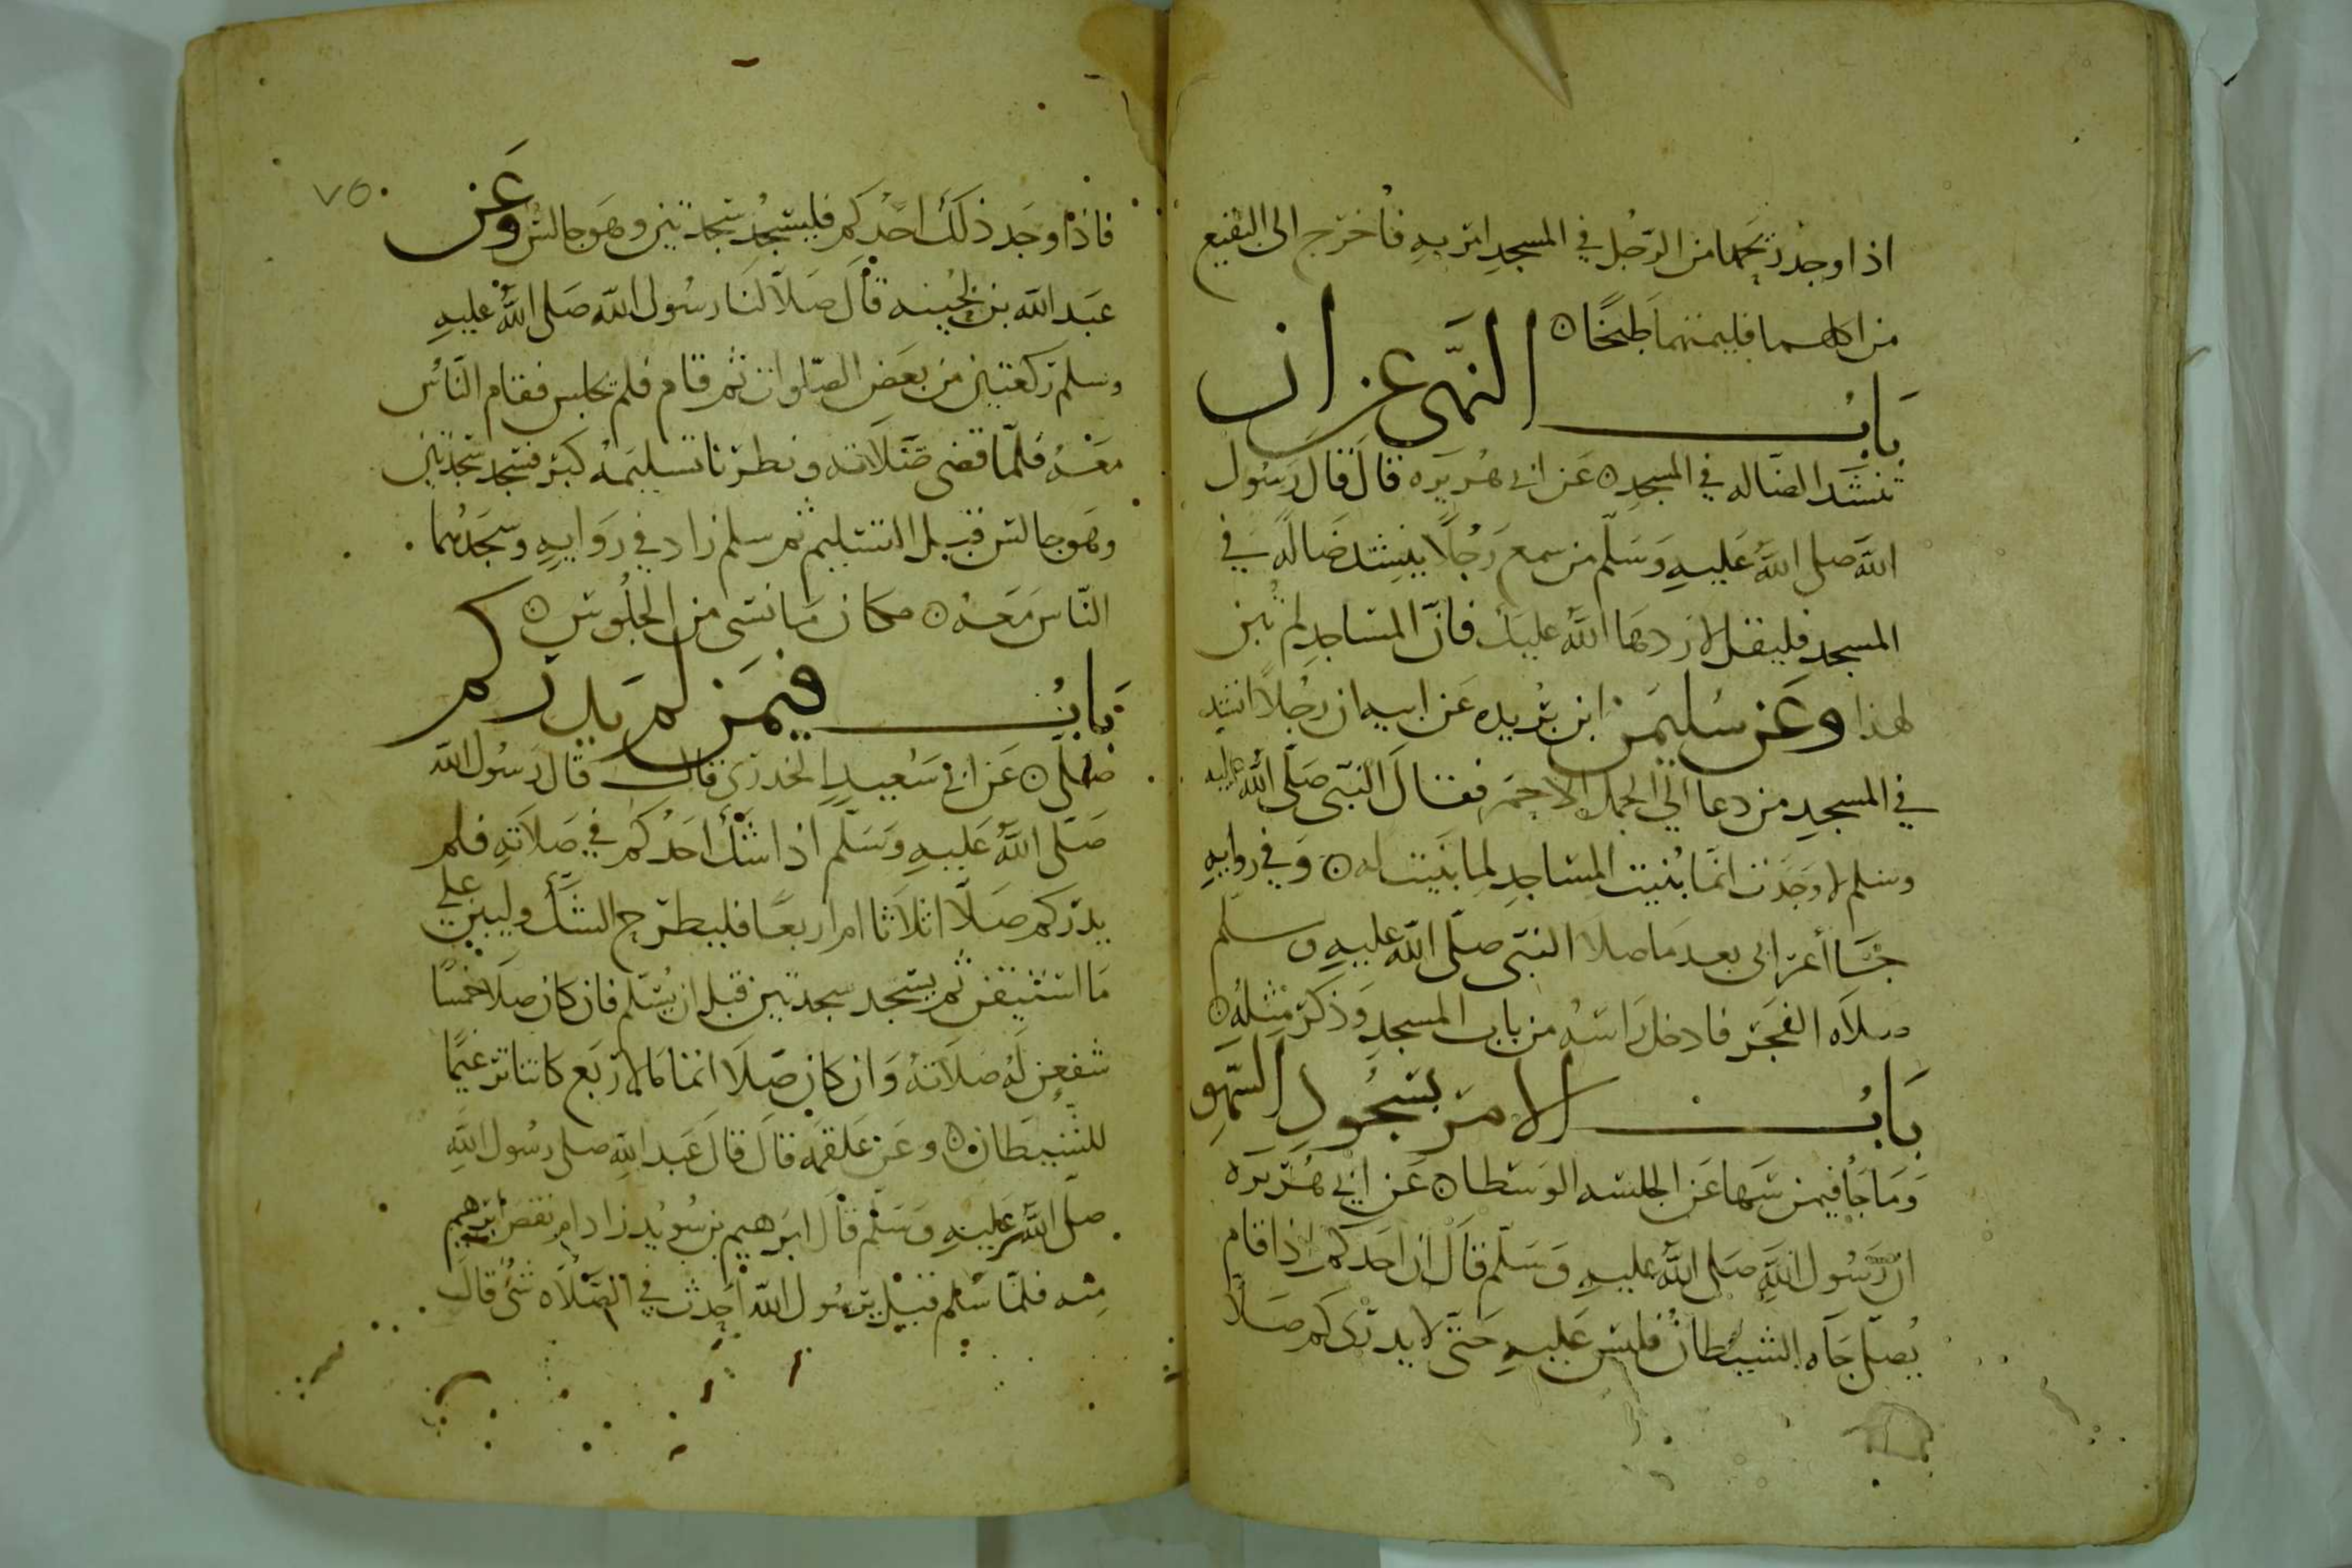 اذا وجد ريحهما من الرجل في المسجد امر به فأخرج الى البقيع
من اكلهما فليمتهما طبخًا ن
بَابُ النهى عن ان
تنشد الضاله في المسجد ن عَن ابي هُريَره قالَ قالَ رَسُول
الله صلى اللهُ عَليهِ وَسَلّم من سمع رَجُلًا ينشد ضَالّه في
المسجد فليقل لا ردهَا اللهُ عليك فانّ المساجد لم تُبن
لهذا وعَن سُليمَن ابن بُريده عَن ابيه ان رجُلًا انشد
في المسجدِ من دعا الي الجمل الاحمَر فقالَ النبّي صَلّى اللهُ عليه
وسلم لا وَجَدت انمَا بُنيت المسَاجدِ لِما بُنيت له ن وَفي روايهِ
جَا أعرَابى بعد مَا صلا النبّي صلّى الله عليهِ وسلم
صلاَه الفجَر فادخل رَاسَهُ من باب المسجدِ وَذكَر مِثلهُ ن
بَابُ الامر بسجُودِ السّهو
وَمَا جَأ فيمن سَهَا عَن الجلسه الوَسطا ن عَن ابي هُرَيرَه
ان رَسُول اللهِ صَلى اللهُ عليهِ وَسَلّم قَالَ ان احَدكم اذا قام
يُصَلّى جَآه الشيطانُ فلبس عَليهِ حَتّى لا يدرى كم صَلاّ
٧٥
فاذا وجَد ذلكَ احَدُكم فليسجُد سَجدتين وهَو جالسٌ وعَن
عبَد الله بن بُحينه قالَ صَلاّ لنَا رسُول الله صَلى اللهُ عليهِ
وسلم ركعتين من بعَض الصّلوات ثم قام فلم يجلس فقام النّاسُ
معَهُ فلمّا قضى صَلاَته ونظرنا تسليمَهُ كبّر فسَجد سَجدتين
وهَو جالس قبل التسليم ثم سلم زاد في رَوايهِ وسجَدهُما
النّاسَ مَعَهُ ن مكان مَا نسَى من الجلُوس ن
بَابُ فيمَن لم يدر كم
صَلّى ن عَن ابي سَعيد الخدرى قال قَالَ رَسُول الله
صَلّى اللهُ عَليهِ وَسَلّم اذا شكّ احَدُكم في صَلاَتهِ فلم
يدر كم صَلاّ اثلاَثا ام اربعًا فليطرح الشكّ وليبن على
مَا استيقن ثم يسَجد سجدتين قبل ان يُسَلم فان كان صَلا خمسًا
شفعن لَهُ صَلاَتهُ وَان كان صَلا اتمامَا لاربَع كانتا ترغيمًا
للشيطان ن وعَن عَلقمَه قالَ قالَ عَبد اللهِ صلى رسُول اللهِ
صلى اللهُ عَليهِ وَسَلّم قالَ ابرَهيم بن سُويُد زاد ام نقصَ ابرهيم
مِنه فلمّا سَلّم قيلَ يرسُول الله أحَدث في الصَّلاَه شئُ قالَ